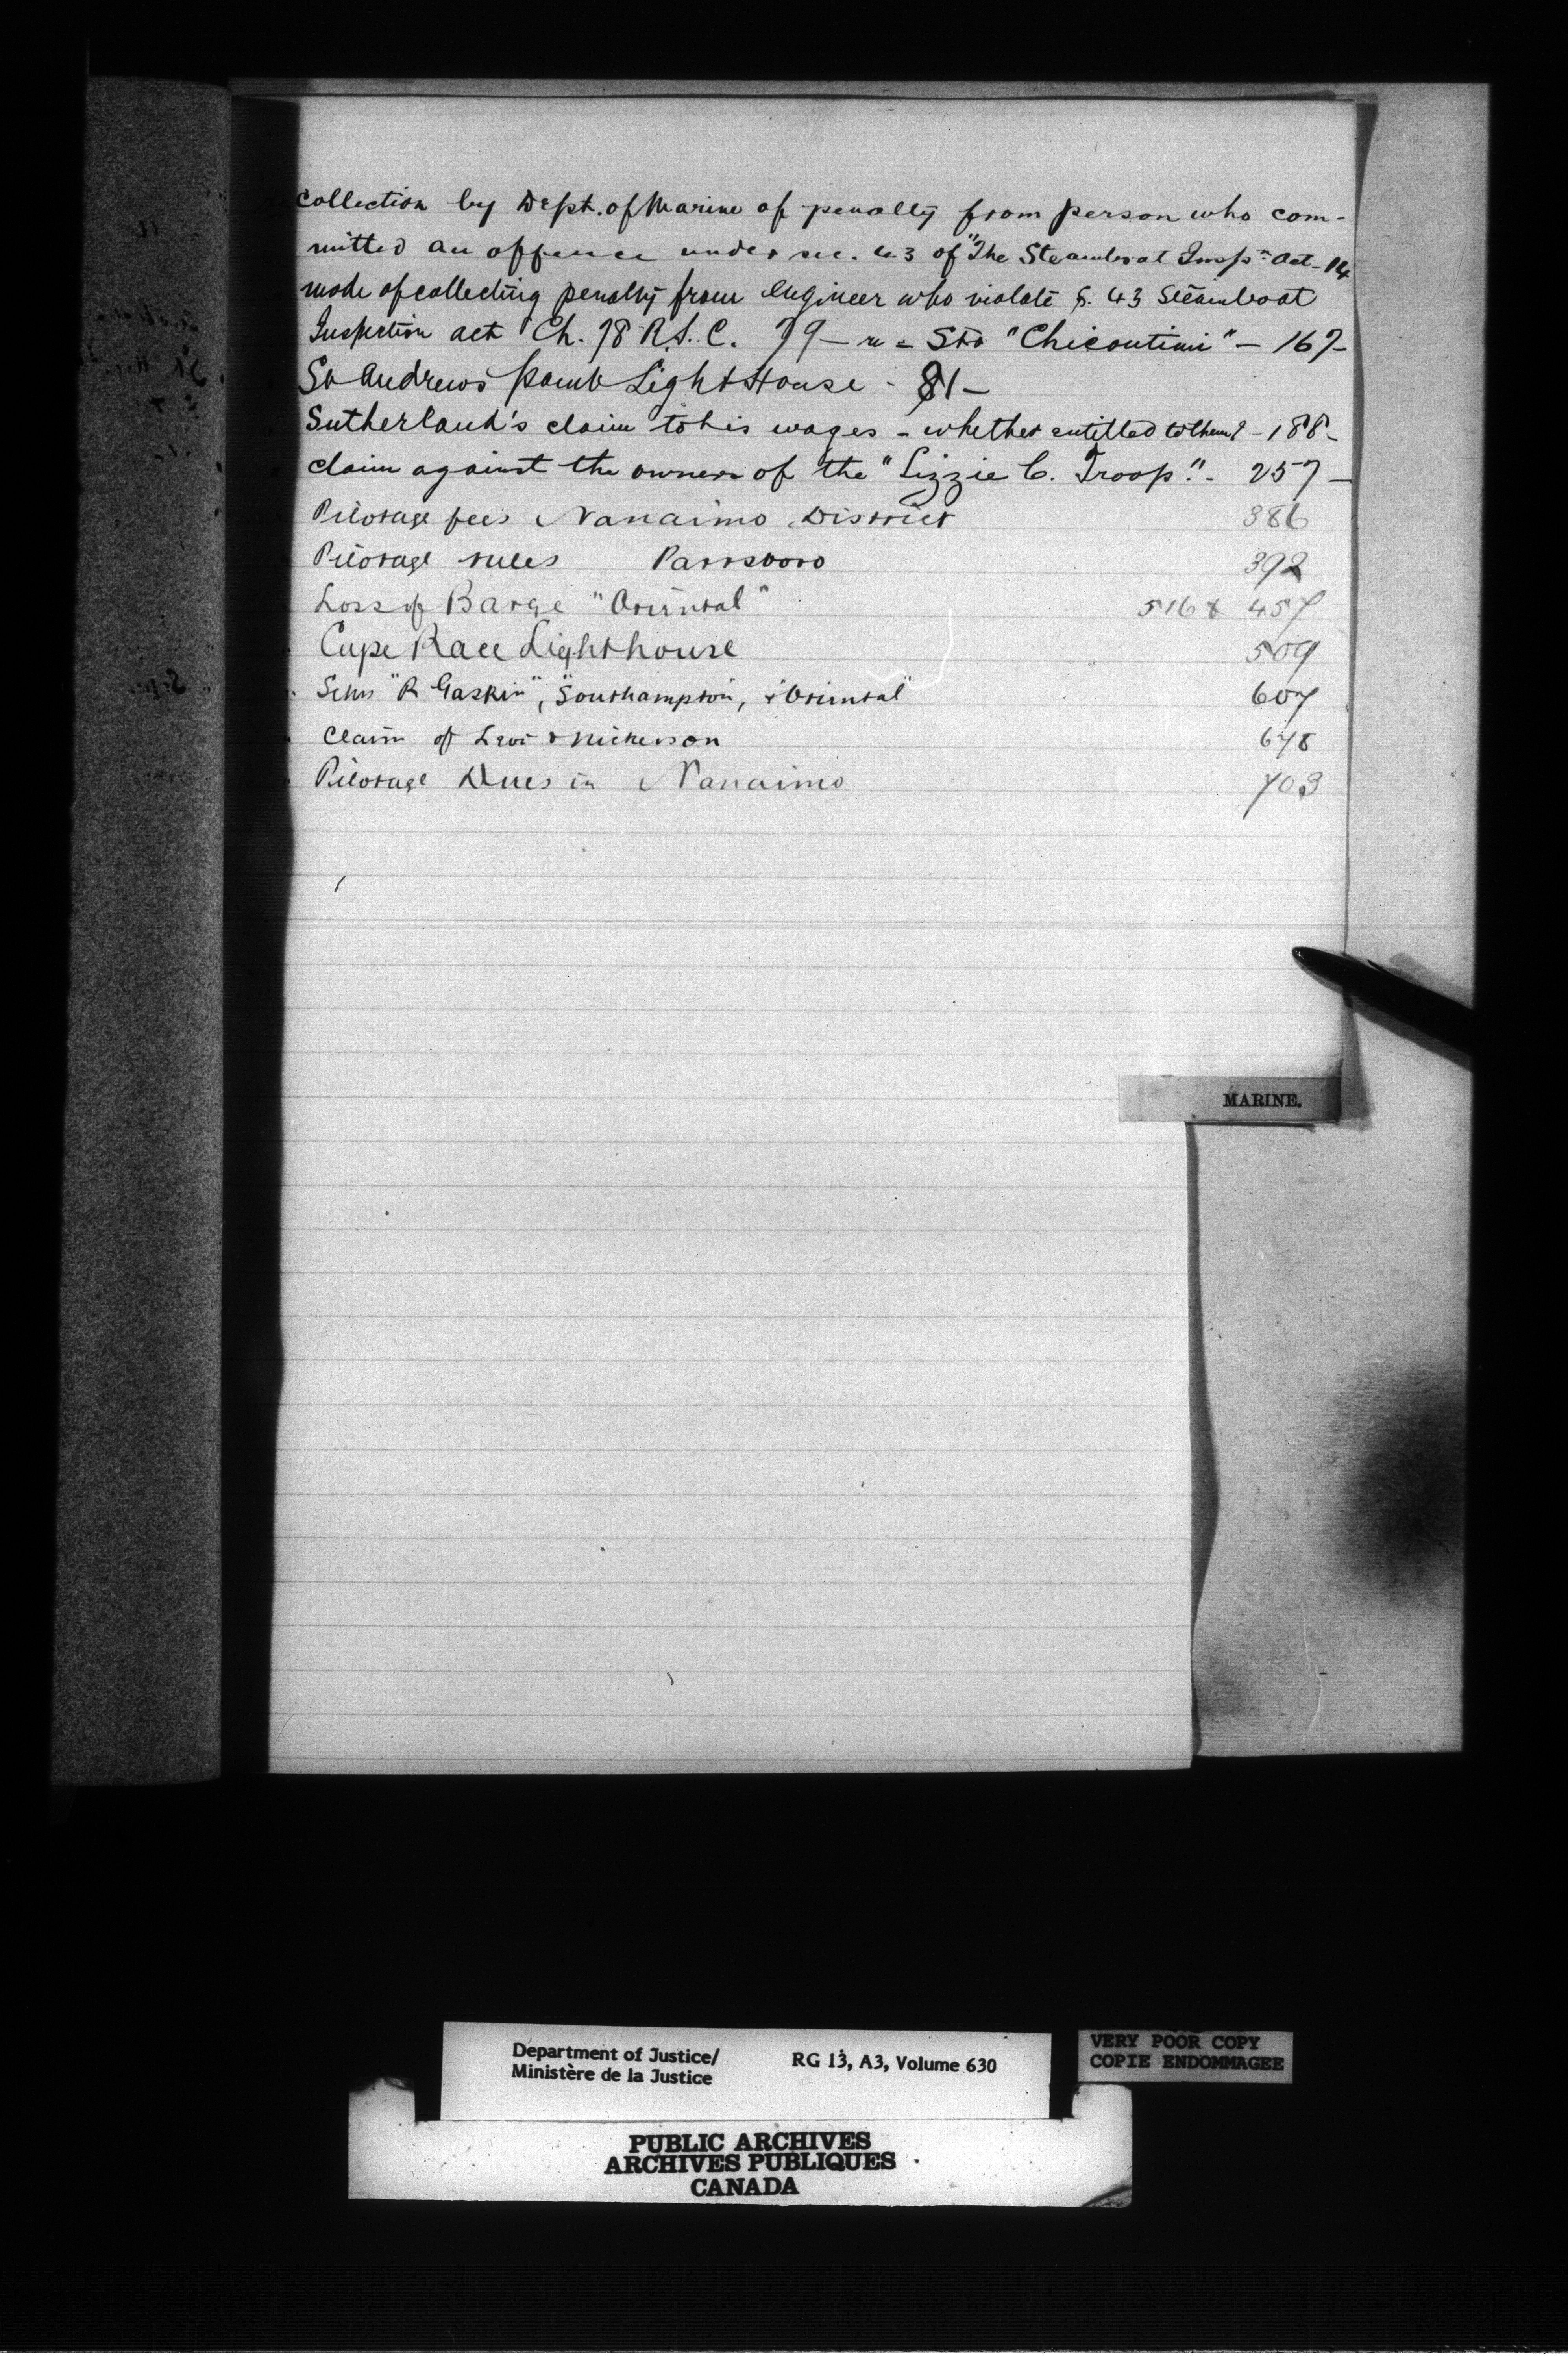 re collection by Dept. of Marine of penalty from person who com-
mitted an offence under sec. 43 of "The Steamboat Insp:n Act - 14
mode of collecting penalty from engineer who violate S. 43 Steamboat
Inspection act Ch. 78 R.S.C. 79 - re - Str "Chicoutimi" - 167 -
St Andrews Point Light House - 81 -
Sutherland's claim to his wages - whether entitled to them? - 188 -
claim against the owners of the "Lizzie C. Troop". - 257 -
Pilotage fees Nanaimo District 386
Pilotage rules Parrsboro 392
Loss of Barge "Oriental" 516 & 457
Cape Race Lighthouse 509
Schs "R Gaskin", "Southampton, & Oriental" 607
Claim of Levi Nickerson 678
Pilotage Dues in Nanaimo 703
MARINE.
Department of Justice/
Ministère de la Justice
RG 13, A3, Volume 630
VERY POOR COPY
COPIE ENDOMMAGEE
PUBLIC ARCHIVES
ARCHIVES PUBLIQUES
CANADA